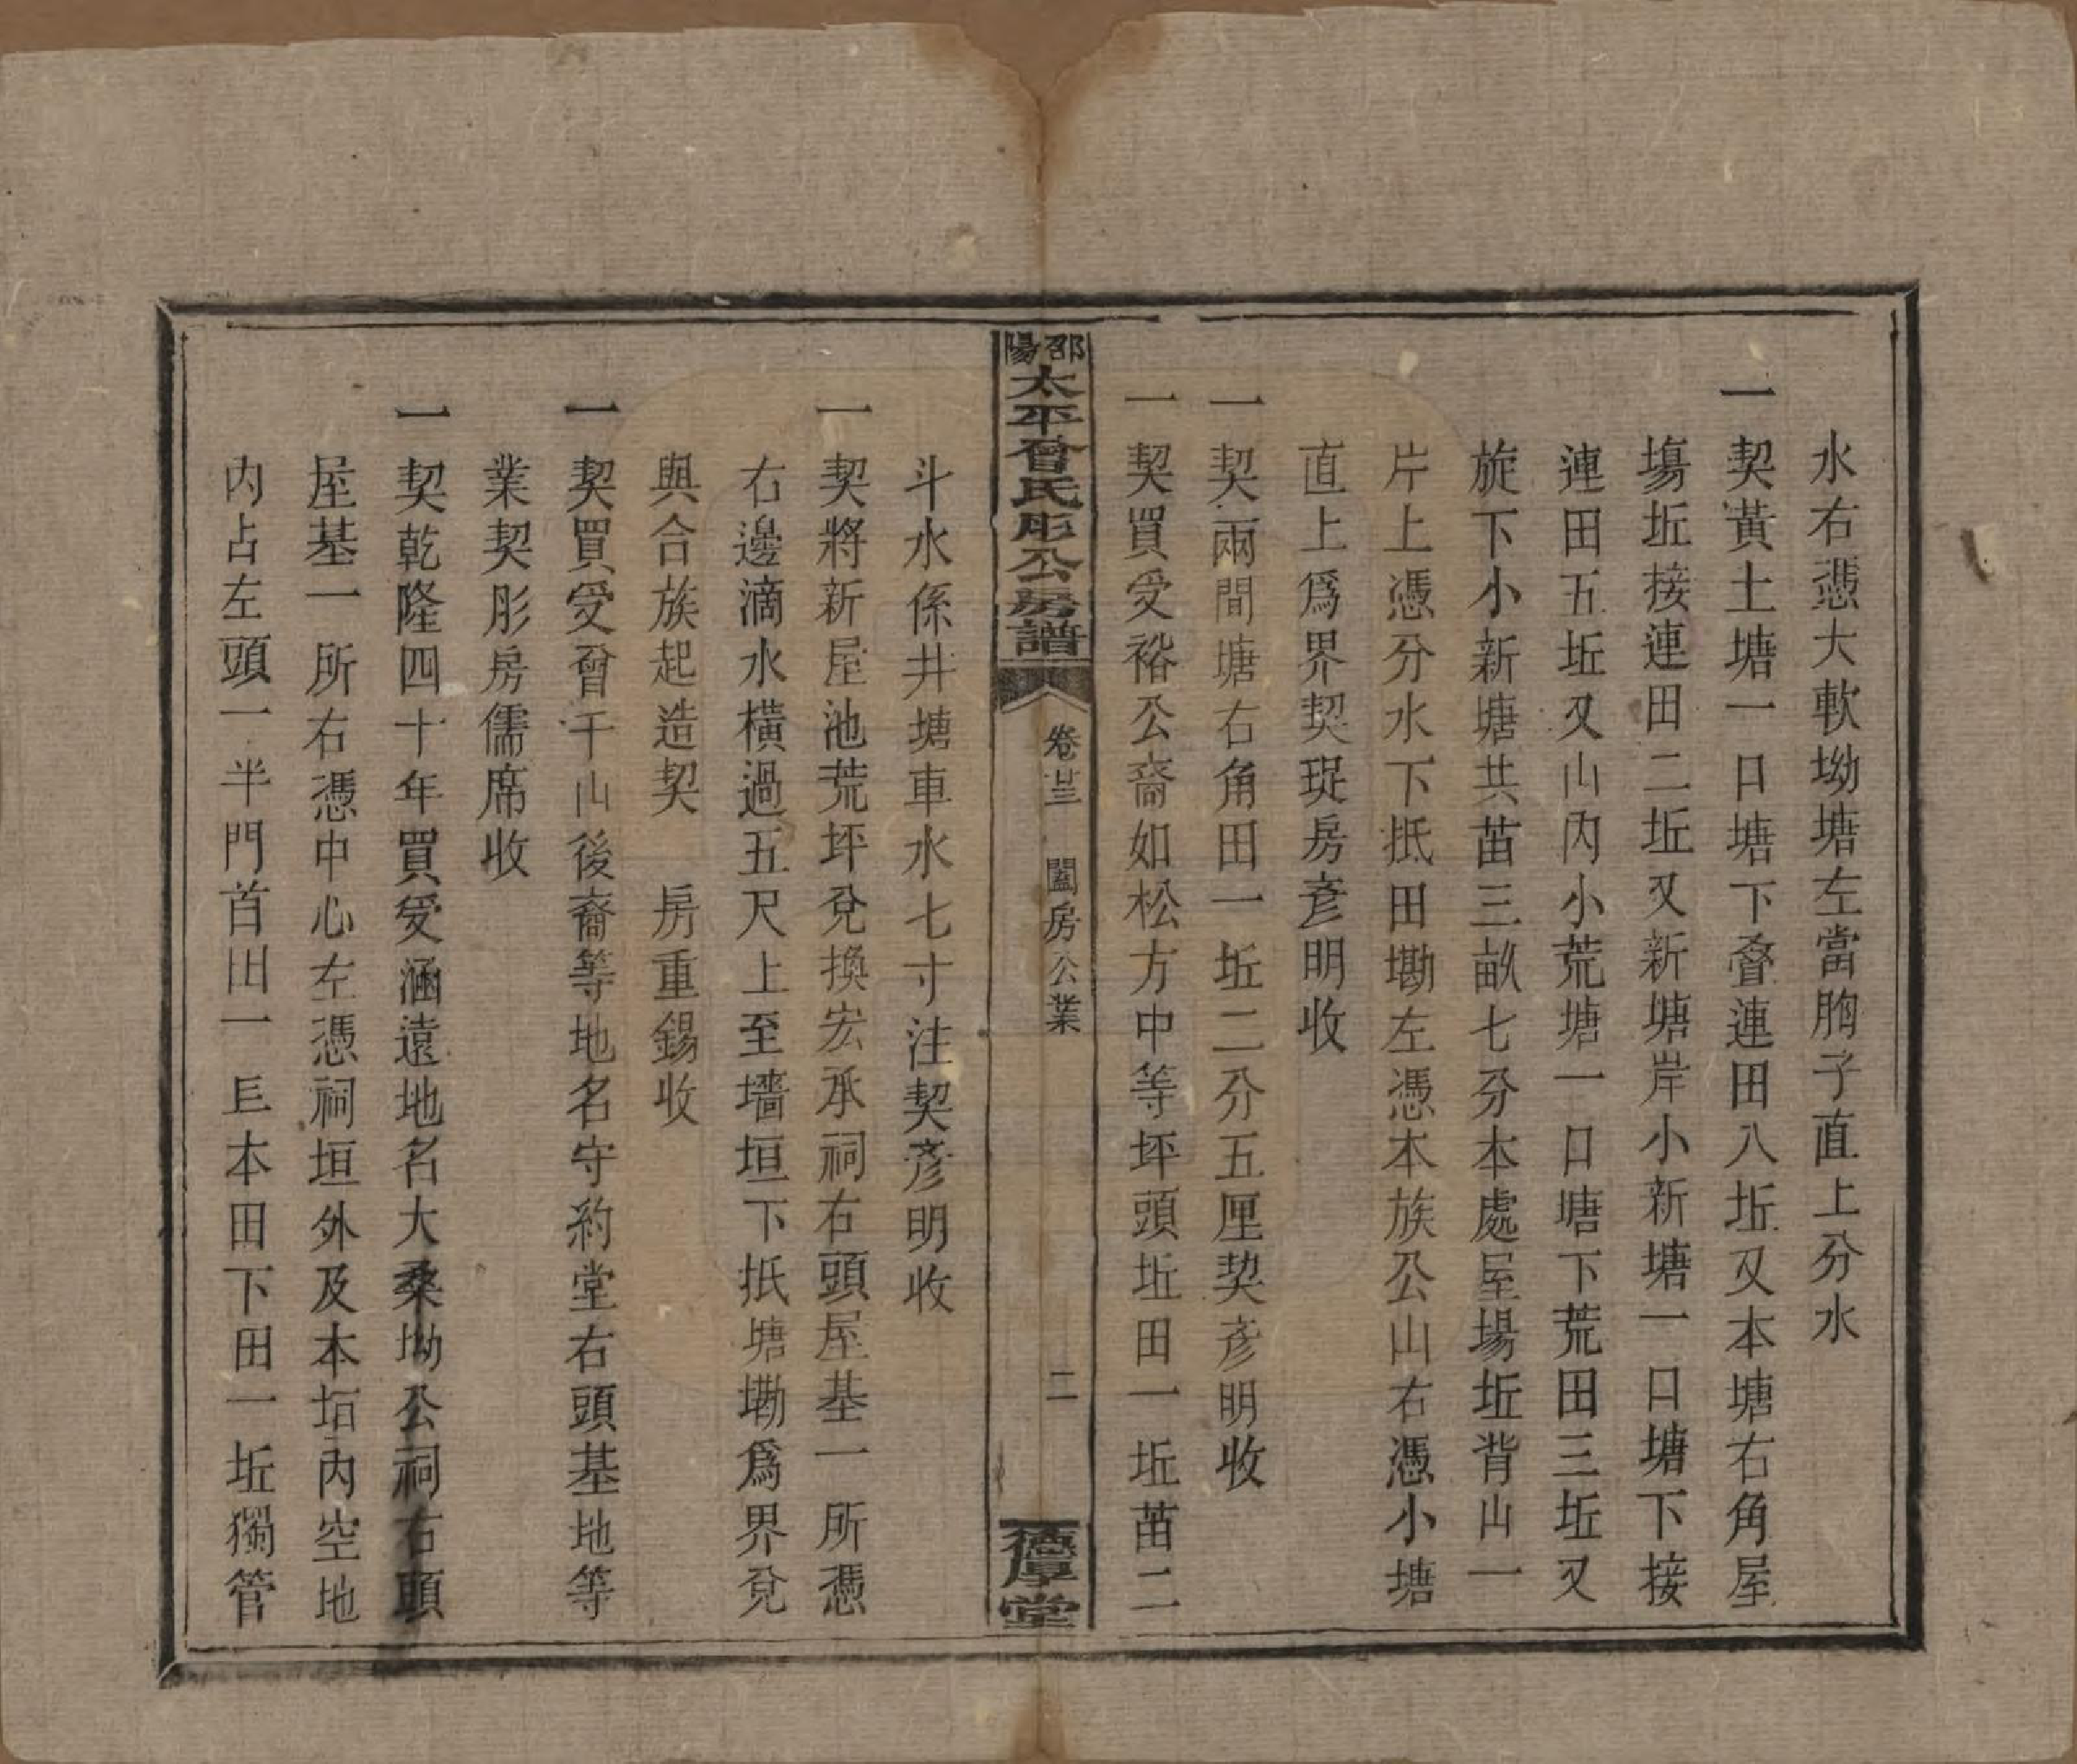 水右憑大軟坳塘左當胸子直上分水
一契黃土塘一口塘下叠連田八坵又本塘右角屋
塲坵接連田二坵又新塘岸小新塘一口塘下接
連田五坵又山內小荒塘一口塘下荒田三坵又
旋下小新塘共苗三畝七分本處屋場坵背山一
片上憑分水下抵田墈左憑本族公山右憑小塘
直上爲界契珽房彥明收
一契兩間塘右角田一坵二分五厘契彥明收
一契買受裕公裔如松方中等坪頭坵田一坵苗二
邵陽太平曾氏彤公房譜 卷廿三 闔房公業 二 德厚堂
斗水係井塘車水七寸注契彥明收
一契將新屋池荒坪兌換宏承祠右頭屋基一所憑
右邊滴水橫過五尺上至墻垣下抵塘墈爲界兌
與合族起造契 房重錫收
一契買受曾千山後裔等地名守約堂右頭基地等
業契彤房儒席收
一契乾隆四十年買受涵遠地名大桑坳公祠右頭
屋基一所右憑中心左憑祠垣外及本垢內空地
內占左頭一半門首田一巨本田下田一坵獨管